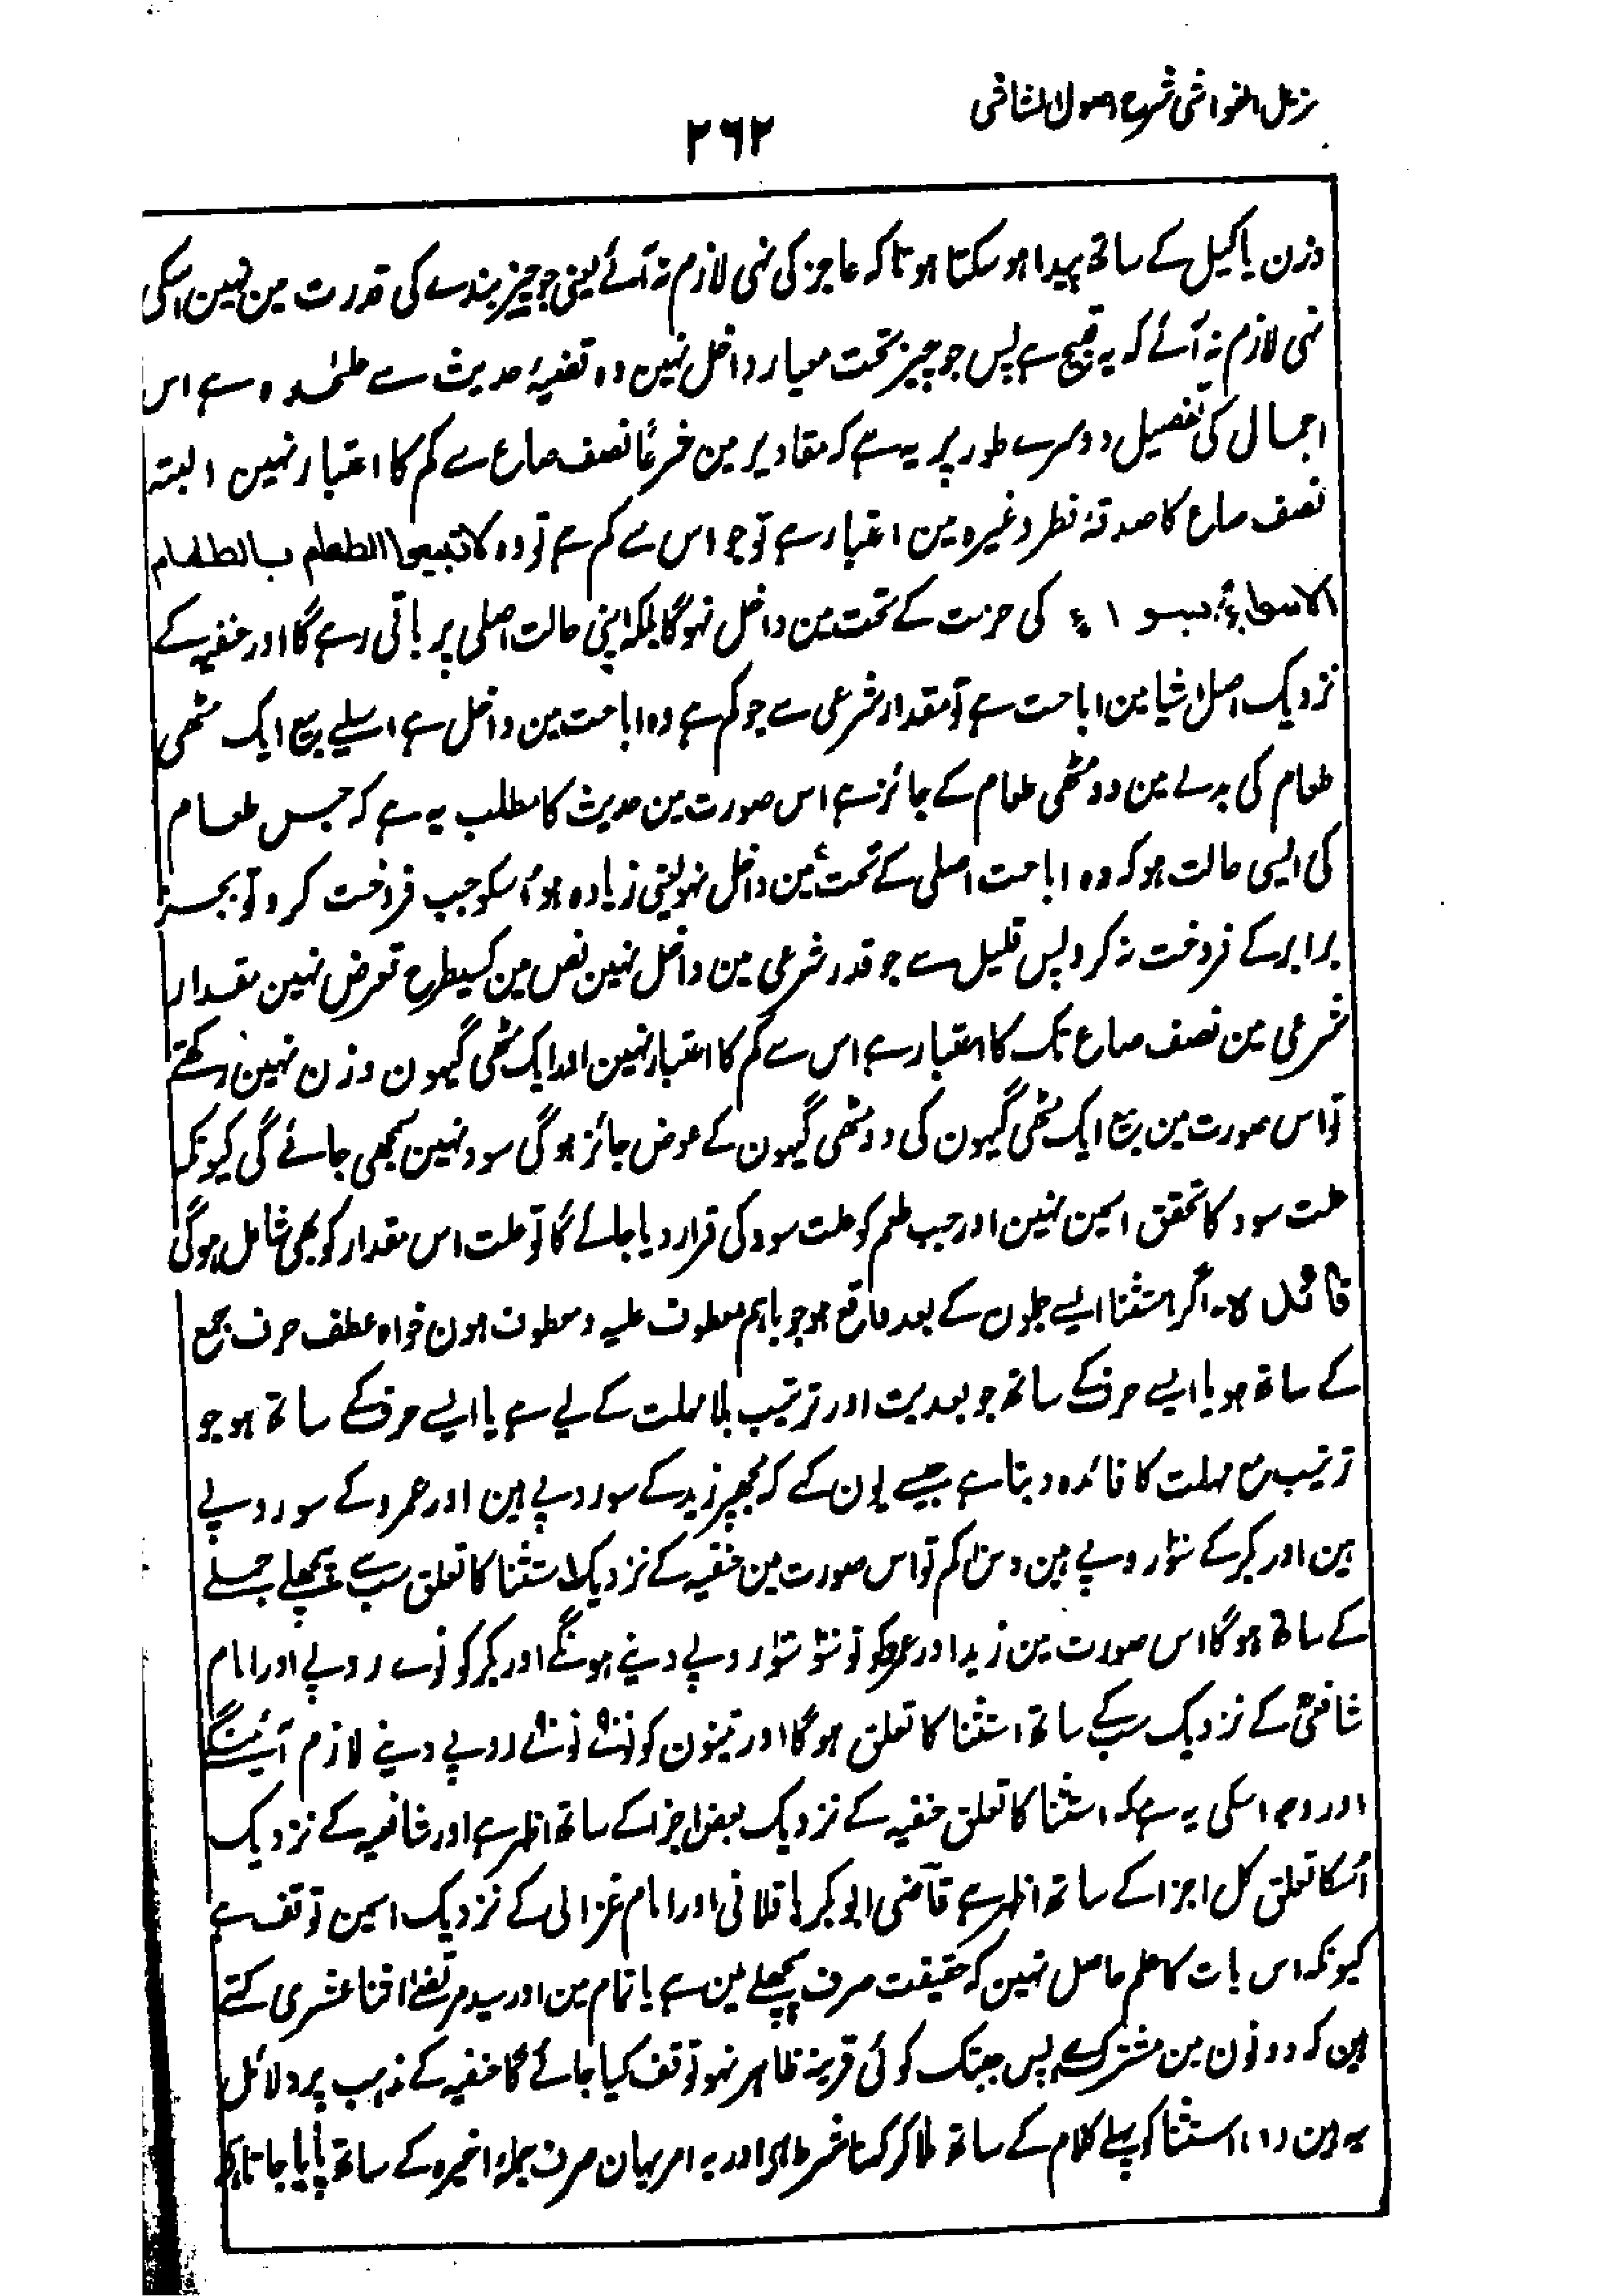 مزیل الغواشی شرح اصول الشاشی
۲۶۲
وزن یا کیل کے ساتھ پیدا ہو سکتا ہو تاکہ عاجز کی نہی لازم نہ آئے یعنی جو چیز بندے کی قدرت مین نہین اسکی
نہی لازم نہ آئے کہ یہ قبیح ہے پس جو چیز تحت معیار داخل نہین وہ قضیۂ حدیث سے علٰحدہ ہے اس
اجمال کی تفصیل دوسرے طور پر یہ ہے کہ مقادیر مین شرعاً نصف صاع سے کم کا اعتبار نہین البتہ
نصف صاع کا صدقۂ فطر وغیرہ مین اعتبار ہے تو جو اس سے کم ہے تو وہ لا تبیعوا الطعام بالطعام
الا سواء بسواء کی حرمت کے تحت مین داخل نہوگا بلکہ اپنی حالت اصلی پر باقی رہے گا اور حنفیہ کے
نزدیک اصل اشیا مین اباحت ہے تو مقدار شرعی سے جو کم ہے وہ اباحت مین داخل ہے اسلیے بیع ایک مٹھی
طعام کی بدلے مین دو مٹھی طعام کے جائز ہے اس صورت مین حدیث کا مطلب یہ ہے کہ جس طعام
کی ایسی حالت ہو کہ وہ اباحت اصلی کے تحت مین داخل نہو یعنی زیادہ ہو اُسکو جب فروخت کرو تو بجز
برابر کے فروخت نہ کرو پس قلیل سے جو قدر شرعی مین داخل نہین نص مین کسیطرح تعرض نہین مقدار
شرعی مین نصف صاع تک کا اعتبار ہے اس سے کم کا اعتبار نہین اور ایک مٹھی گیہون وزن نہین رکھتے
تو اس صورت مین بیع ایک مٹھی گیہون کی دو مٹھی گیہون کے عوض جائز ہوگی سود نہین سمجھی جائے گی کیونکہ
علت سود کا تحقق اسمین نہین اور جب طعم کو علت سود کی قرار دیا جائے گا تو علت اس مقدار کو بھی شامل ہوگی
فائدہ۔ اگر استثنا ایسے جملون کے بعد واقع ہو جو باہم معطوف علیہ و معطوف ہون خواہ عطف حرف جمع
کے ساتھ ہو یا ایسے حرف کے ساتھ جو بعدیت اور ترتیب بلا مہلت کے لیے ہے یا ایسے حرف کے ساتھ ہو جو
ترتیب مع مہلت کا فائدہ دیتا ہے جیسے یون کہے کہ مجھپر زید کے سو روپے ہین اور عمرو کے سو روپے
ہین اور بکر کے سو روپے ہین دس کم تو اس صورت مین حنفیہ کے نزدیک استثنا کا تعلق سب سے پچھلے جملے
کے ساتھ ہوگا اس صورت مین زید اور عمرو کو تو سو سو روپے دینے ہونگے اور بکر کو نوے روپے اور امام
شافعیؒ کے نزدیک سب کے ساتھ استثنا کا تعلق ہوگا اور تینون کو نوے نوے روپے دینے لازم آئینگے
اور وجہ اسکی یہ ہے کہ استثنا کا تعلق حنفیہ کے نزدیک بعض اجزا کے ساتھ اظہر ہے اور شافعیہ کے نزدیک
اُسکا تعلق کل اجزا کے ساتھ اظہر ہے قاضی ابو بکر باقلانی اور امام غزالی کے نزدیک اسمین توقف ہے
کیونکہ اس بات کا علم حاصل نہین کہ حقیقت صرف پچھلے مین ہے یا تمام مین اور سید مرتضے اثنا عشری کہتے
ہین کہ دونون مین مشترک ہے پس جبتک کوئی قرینہ ظاہر نہو توقف کیا جائے گا حنفیہ کے مذہب پر دلائل
یہ ہین (۱) استثنا کو پہلے کلام کے ساتھ ملا کر کہنا شرط ہے اور یہ امر یہان صرف جملۂ اخیرہ کے ساتھ پایا جاتا ہے